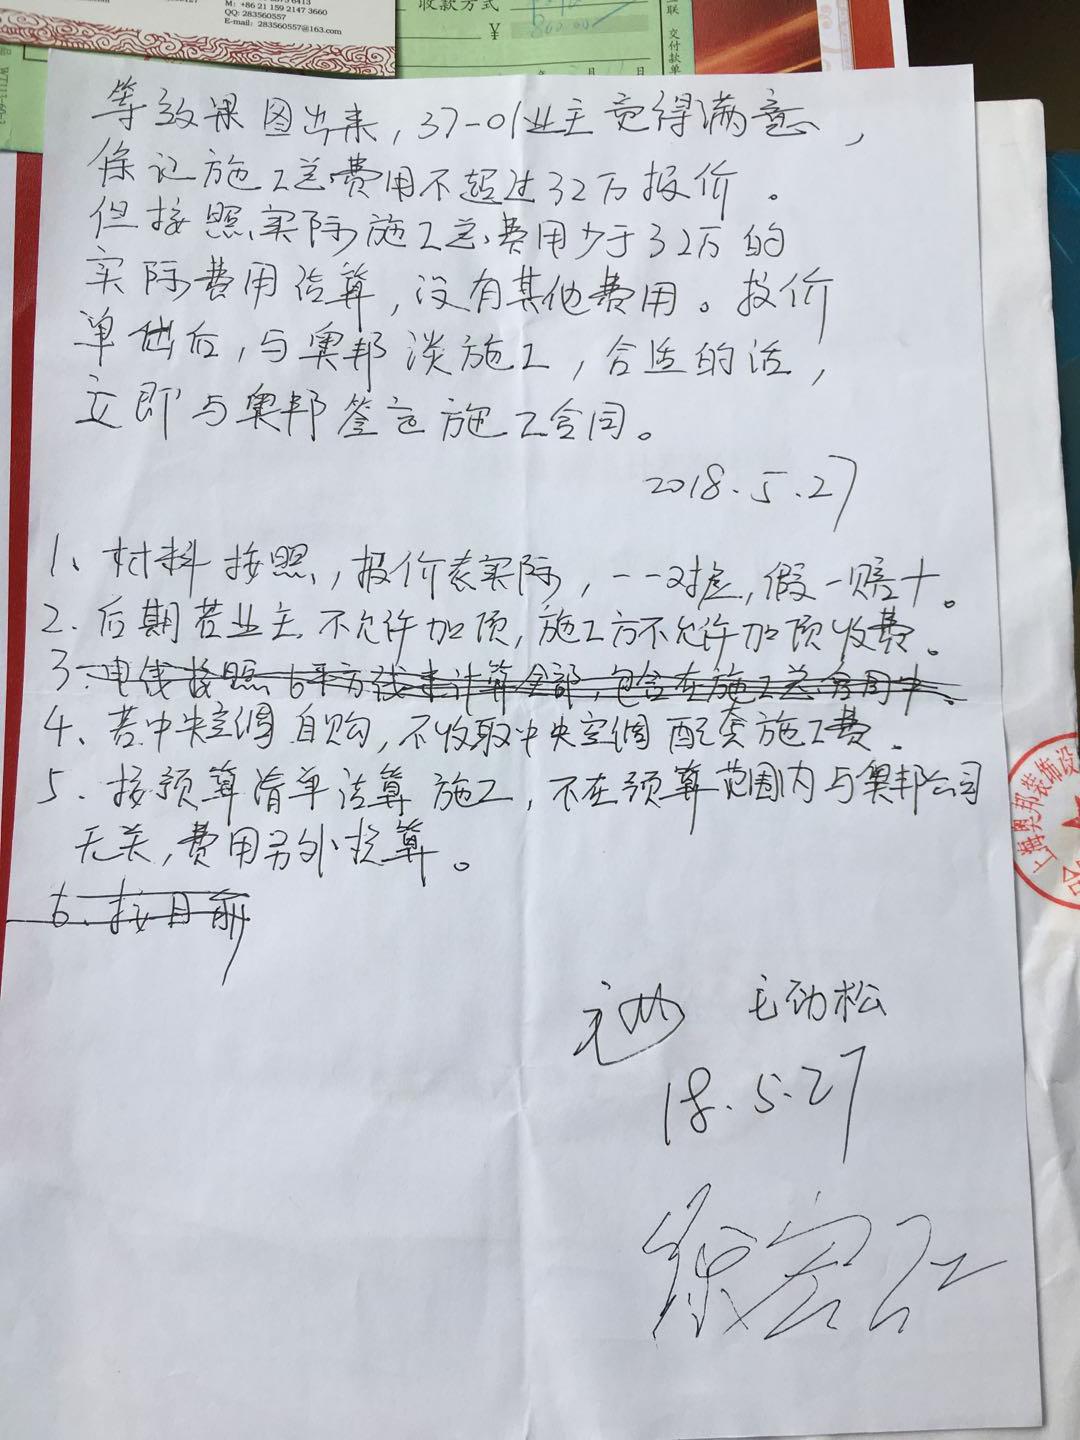 M: +86 21 159 2147 3660
QQ: 283560557
E-mail: 283560557@163.com
收款方式
¥
交付款单
等效果图出来，37-01业主觉得满意，
保证施工总费用不超过32万报价。
但按照实际施工总费用少于32万的
实际费用结算，没有其他费用。报价
单出后，与奥邦谈施工，合适的话，
立即与奥邦签定施工合同。
2018.5.27
1、材料按照，报价表实际，一一对应，假一赔十。
2、后期若业主不允许加项，施工方不允许加项收费。
3、电线按照6平方线来计算全部，包含在施工总合同中。
4、若中央空调自购，不收取中央空调配套施工费。
5、按预算清单结算施工，不在预算范围内与奥邦公司
无关，费用另外换算。
6、按目前
上海奥邦装饰设
毛劲松
18.5.27